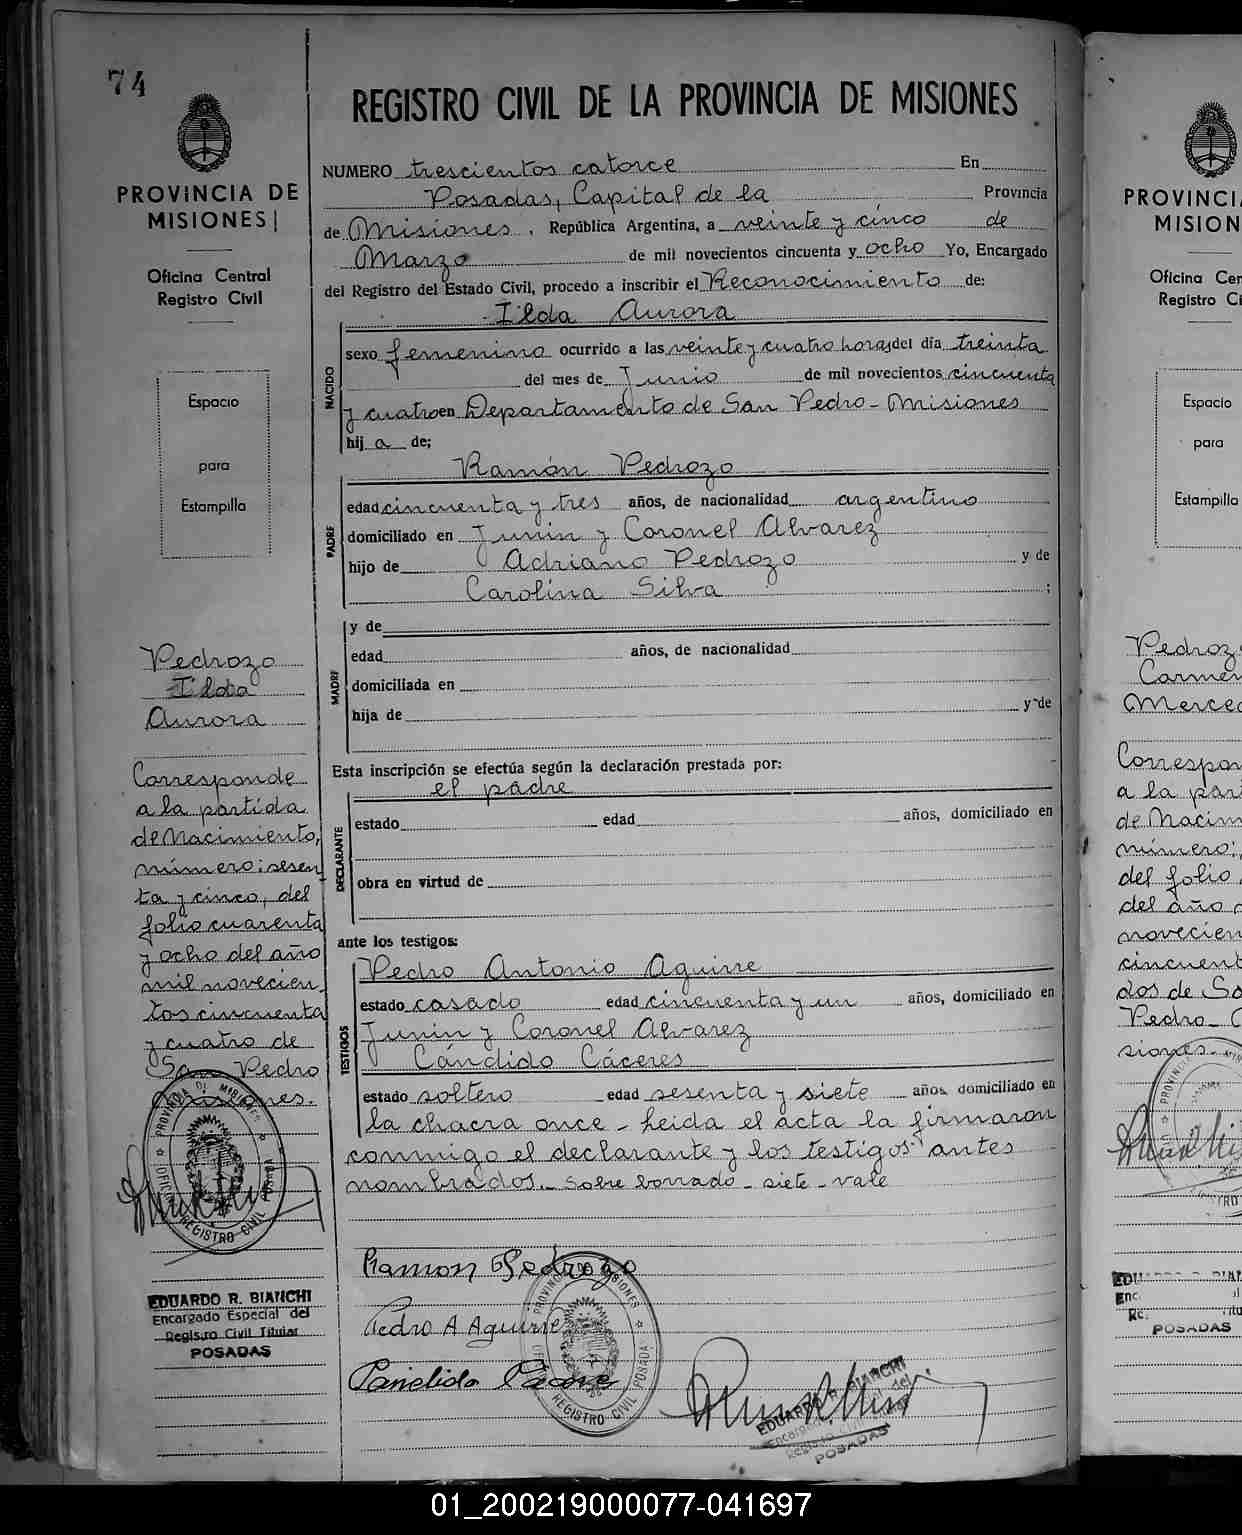 74
PROVINCIA DE
MISIONES
Oficina Central
Registro Civil
Espacio
para
Estampilla
Pedrozo
Ilda
Aurora
Corresponde
a la partida
de Nacimiento,
número: sesen
ta y cinco, del
folio cuarenta
y ocho del año
mil novecien
tos cincuenta
y cuatro de
San Pedro
Misiones.
PROVINCIA DE MISIONES
OFICINA REGISTRO CIVIL POSADA
EDUARDO R. BIANCHI
Encargado Especial del
Registro Civil Titular
POSADAS
REGISTRO CIVIL DE LA PROVINCIA DE MISIONES
NUMERO trescientos catorce En
Posadas, Capital de la Provincia
de Misiones, República Argentina, a veinte y cinco de
Marzo de mil novecientos cincuenta y ocho Yo, Encargado
del Registro del Estado Civil, procedo a inscribir el Reconocimiento de:
Ilda Aurora
NACIDO
sexo femenino ocurrido a las veinte y cuatro horas del día treinta
del mes de Junio de mil novecientos cincuenta
y cuatro en Departamento de San Pedro - Misiones
hij a de;
Ramón Pedrozo
PADRE
edad cincuenta y tres años, de nacionalidad argentino
domiciliado en Junin y Coronel Alvarez
hijo de Adriano Pedrozo y de
Carolina Silva ;
MADRE
y de
edad años, de nacionalidad
domiciliada en
hija de y de
Esta inscripción se efectúa según la declaración prestada por:
el padre
DECLARANTE
estado edad años, domiciliado en
obra en virtud de
ante los testigos:
Pedro Antonio Aguirre
TESTIGOS
estado casado edad cincuenta y un años, domiciliado en
Junin y Coronel Alvarez
Cándido Cáceres
estado soltero edad sesenta y siete años, domiciliado en
la chacra once - Leida el acta la firmaron
conmigo el declarante y los testigos antes
nombrados. - Sobre borrado - siete - vale
Ramon Pedrozo
Pedro A Aguirre
PROVINCIA DE MISIONES
OFICINA REGISTRO CIVIL POSADA
EDUARDO R. BIANCHI
Encargado Especial del
Registro Civil
POSADAS
PROVINCI
MISION
Oficina Cen
Registro Ci
Espacio
para
Estampilla
Pedrozo
Carmen
Merced
Correspon
a la part
de Nacim
número:
del folio
del año
novecien
cincuent
dos de Sa
Pedro -
siones.
POSADAS
01_200219000077-041697